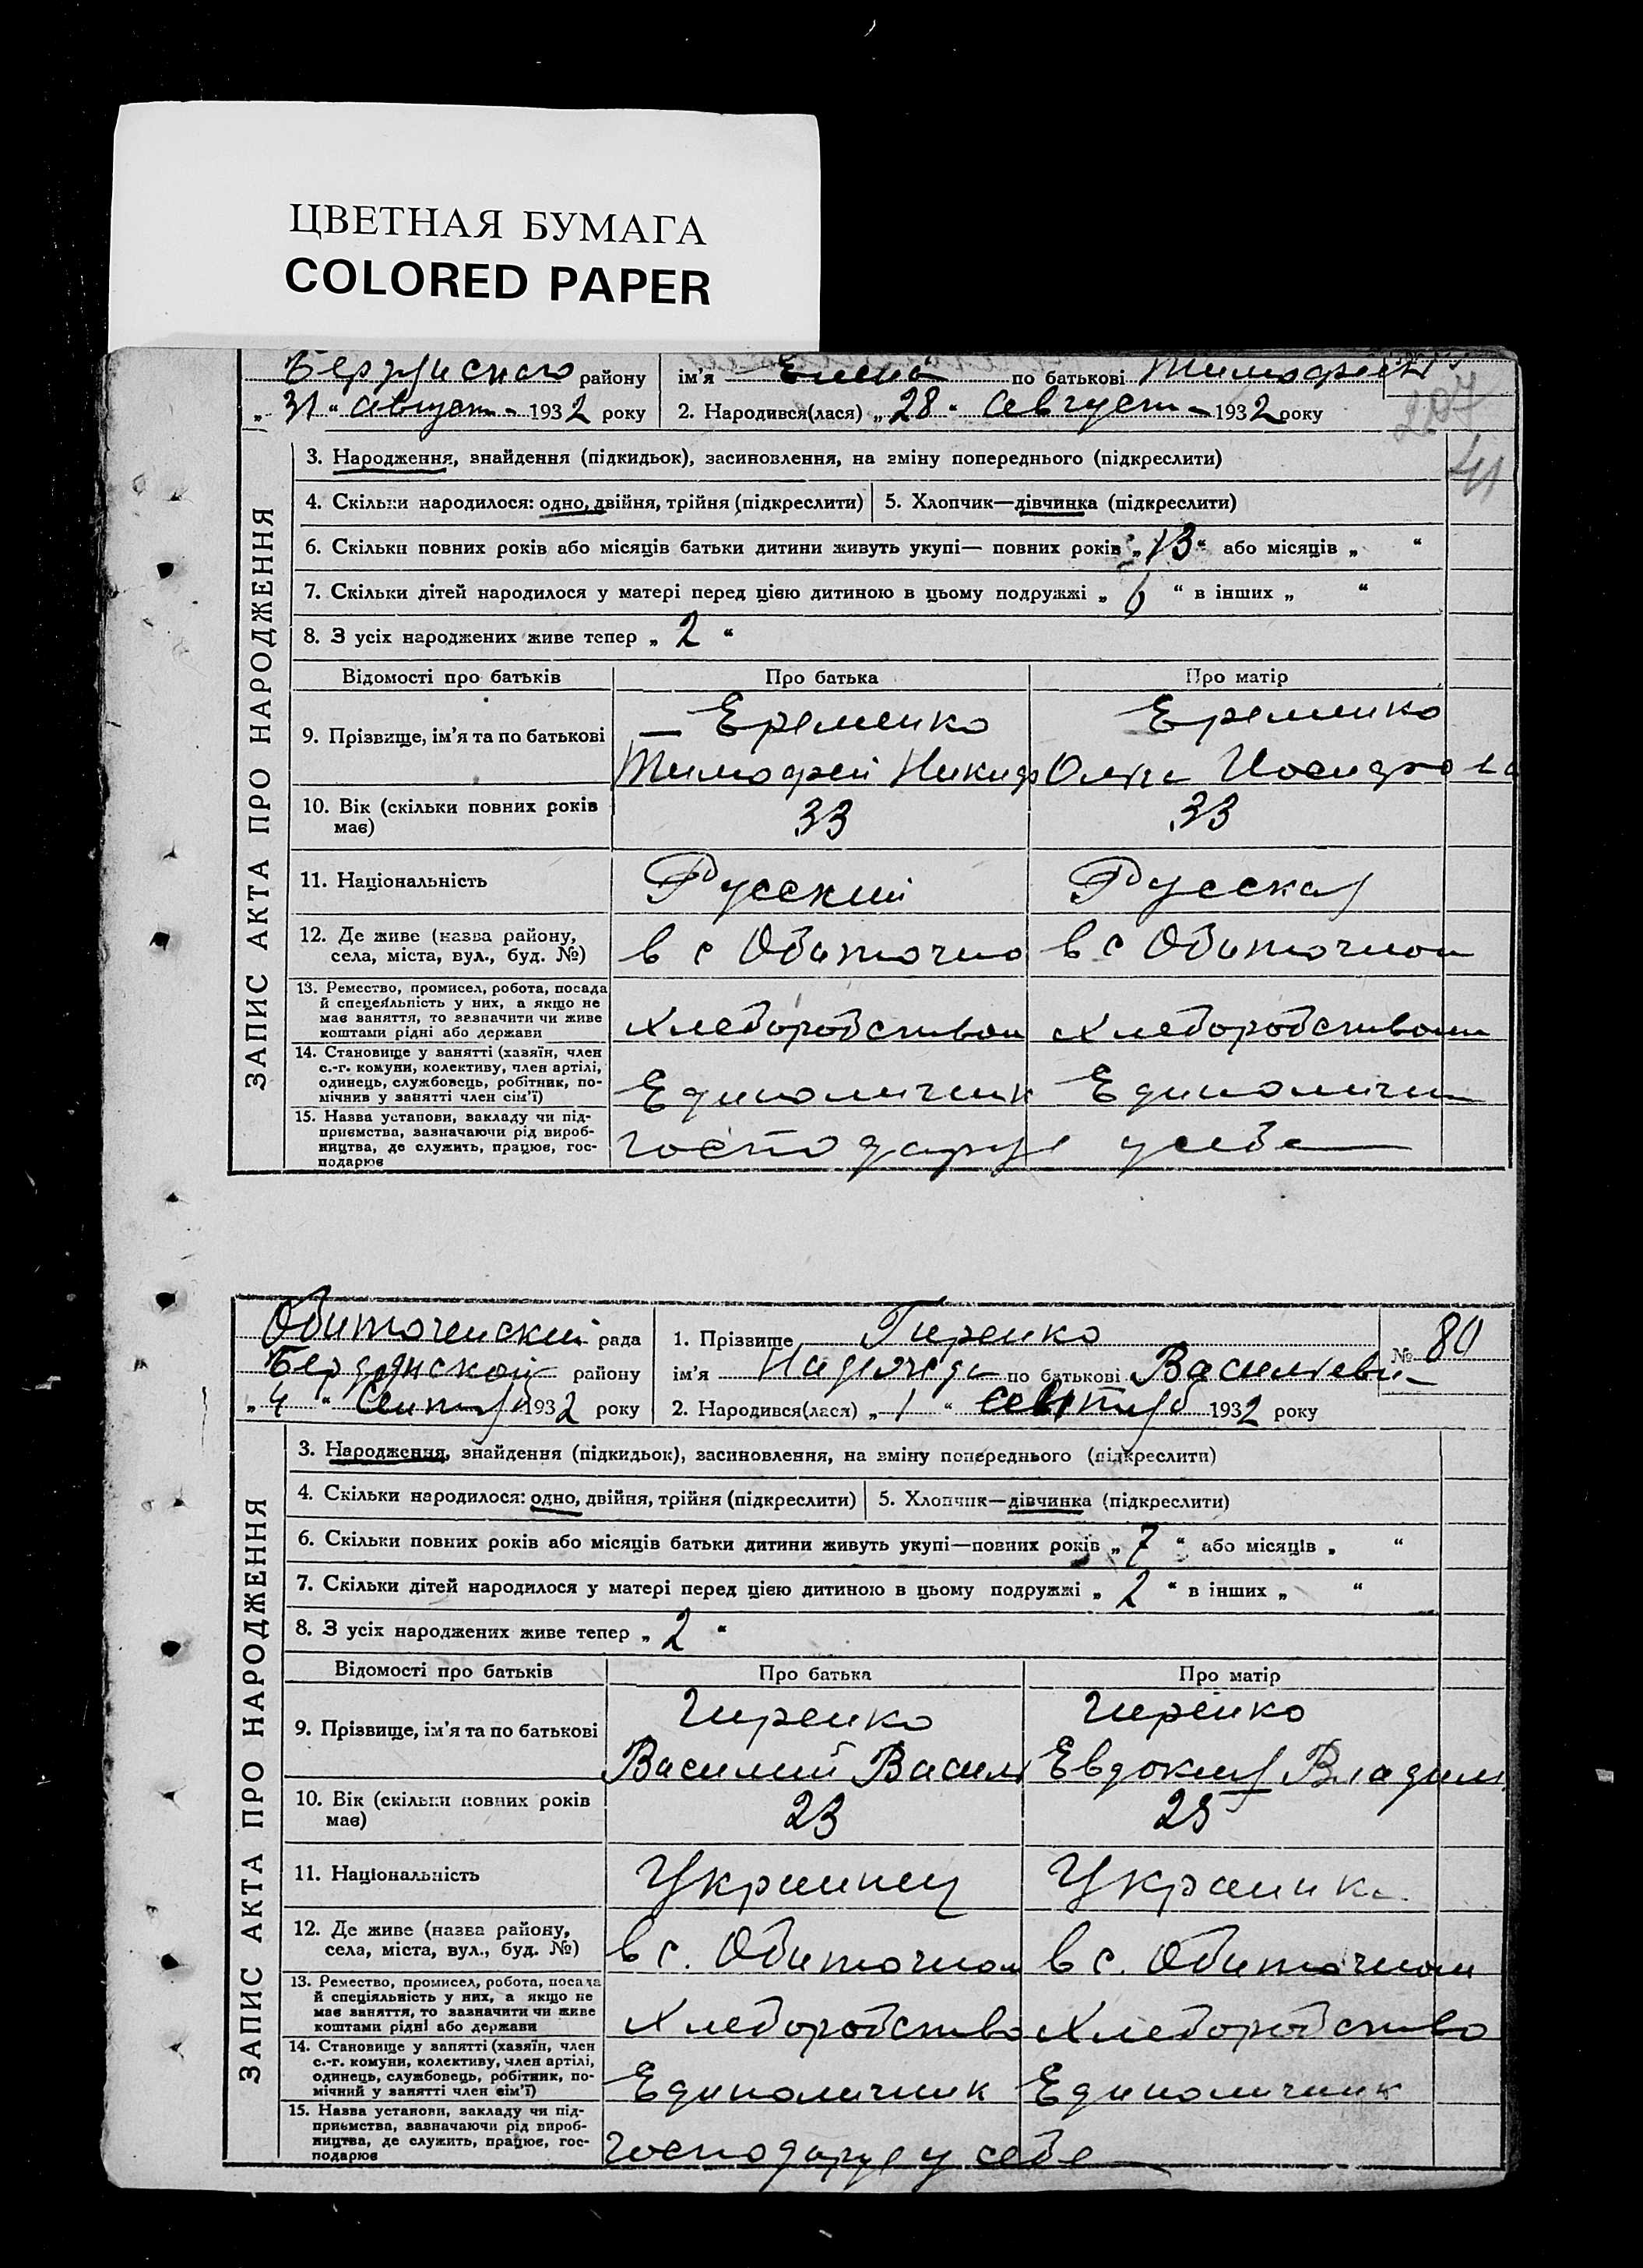 ЦВЕТНАЯ БУМАГА
COLORED PAPER
району ім'я Елена по батькові
„ 31 " август 1932 року 2. Народився(лася) „ 28 " август 1932 року
207
41
ЗАПИС АКТА ПРО НАРОДЖЕННЯ
3. Народження, знайдення (підкидьок), засиновлення, на зміну попереднього (підкреслити)
4. Скільки народилося: одно, двійня, трійня (підкреслити) 5. Хлопчик—дівчинка (підкреслити)
6. Скільки повних років або місяців батьки дитини живуть укупі— повних років „ 13 " або місяців „ "
7. Скільки дітей народилося у матері перед цією дитиною в цьому подружжі „ 6 " в інших „ "
8. З усіх народжених живе тепер „ 2 "
Відомості про батьків Про батька Про матір
9. Прізвище, ім'я та по батькові
Еременко Еременко
Тимофей Никиф
10. Вік (скільки повних років має) 33 33
11. Національність Русский Русская
12. Де живе (назва району, села, міста, вул., буд. №) в с Обиточно в с Обиточном
13. Ремество, промисел, робота, посада й спецеяльність у них, а якщо не має заняття, то зазначити чи живе коштами рідні або держави Хлеборобством Хлеборобством
14. Становище у занятті (хазяїн, член с.-г. комуни, колективу, член артілі, одинець, службовець, робітник, помічник у занятті член сім'ї) Единоличник Единоличн
15. Назва установи, закладу чи підприємства, зазначаючи рід виробництва, де служить, працює, господарює господарує у себе
Обиточенский рада 1. Прізвище Гиренко № 80
Бердянской району ім'я Надежда по батькові Васильевн
„ 4 " Сентяб 1932 року 2. Народився(лася) „ 1 " сентяб 1932 року
ЗАПИС АКТА ПРО НАРОДЖЕННЯ
3. Народження, знайдення (підкидьок), засиновлення, на зміну попереднього (підкреслити)
4. Скільки народилося: одно, двійня, трійня (підкреслити) 5. Хлопчик—дівчинка (підкреслити)
6. Скільки повних років або місяців батьки дитини живуть укупі—повних років „ 7 " або місяців „ "
7. Скільки дітей народилося у матері перед цією дитиною в цьому подружжі „ 2 " в інших „ "
8. З усіх народжених живе тепер „ 2 "
Відомості про батьків Про батька Про матір
9. Прізвище, ім'я та по батькові
Гиренко Гиренко
Василий Василь Евдокия Владим
10. Вік (скільки повних років має) 23 25
11. Національність Украинец Украинка
12. Де живе (назва району, села, міста, вул., буд. №) в с. Обиточном в с. Обиточном
13. Ремество, промисел, робота, посада й спеціяльність у них, а якщо не має заняття, то зазначити чи живе коштами рідні або держави Хлеборобство Хлеборобство
14. Становище у занятті (хазяїн, член с.-г. комуни, колективу, член артілі, одинець, службовець, робітник, помічний у занятті член сім'ї) Единоличник Единоличник
15. Назва установи, закладу чи підприємства, зазначаючи рід виробництва, де служить, працює, господарює господарує у себе